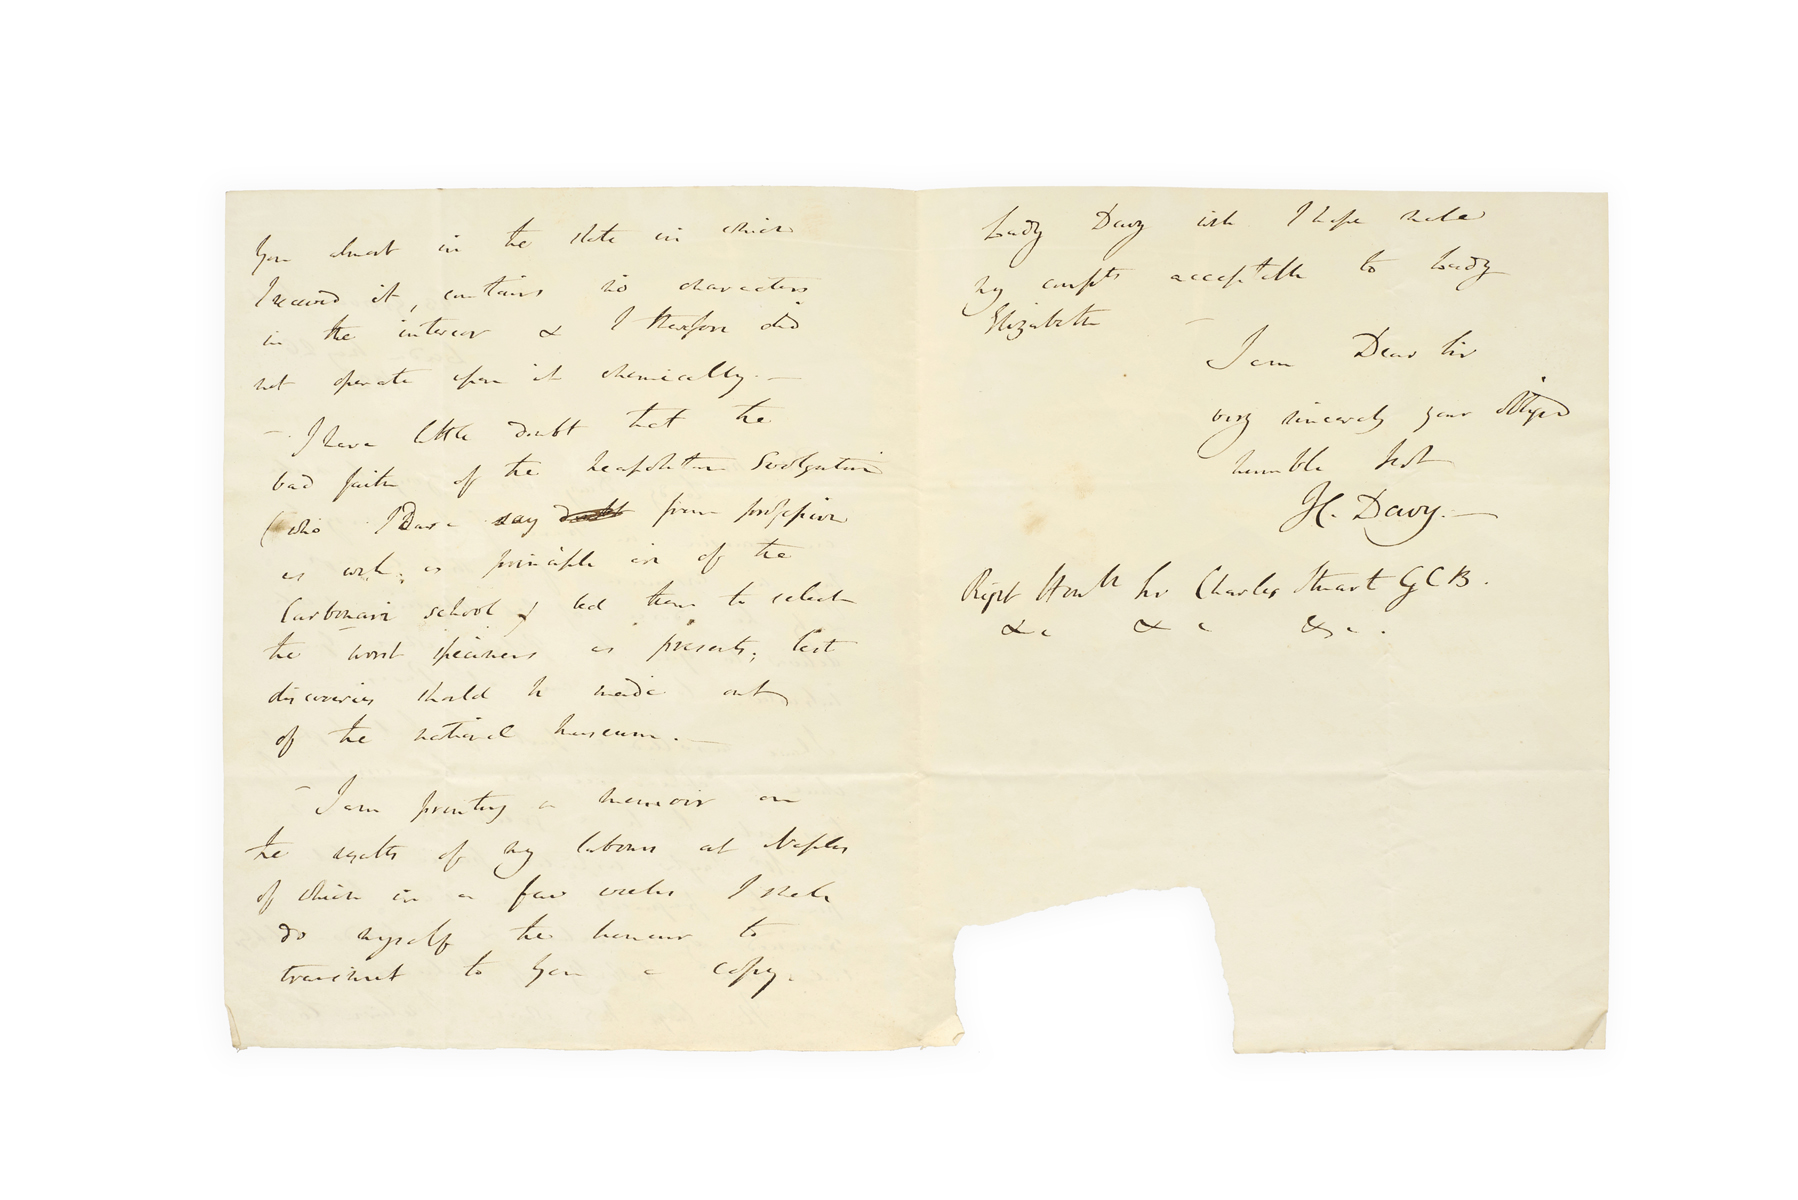 You almost in the state in which
I received it, contains no characters
in the interior & I therefore did
not operate upon it chemically. —
— I have little doubt that the
bad faith of the neapolitan
(who I Dare say from profession
as well as principle are of the
Carbonari school) led them to select
the worst specimens as presents; lest
discoveries should be made out
of the national museum. —
— I am printing a memoir on
the results of my labours at Naples
of which in a few weeks I shall
do myself the honour to
transmit to you a copy.
Lady Davy will I hope make
my compts acceptable to Lady
Elizabeth —
I am Dear Sir
very sincerely your obliged
humble Sert
H. Davy. —
Right Honble Sir Charles Stuart GCB.
&c &c &c.